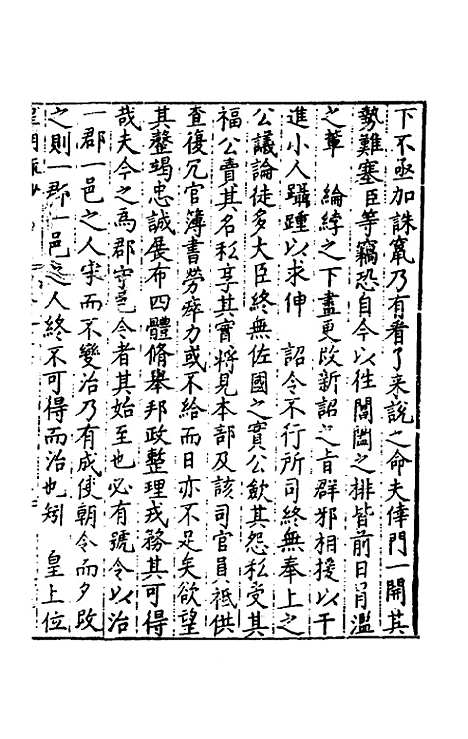 下不亟加誅竄乃有看了来說之命夫倖門一開其
勢難塞臣等竊恐自今以徃閶闔之排皆前日肎濫
之輩　綸綍之下盡更改新詔之㫖群邪相援以干
進小人躡踵以求伸　詔令不行所司終無奉上之
公議論徒多大臣終無佐國之實公歛其怨私受其
福公賣其名私享其實將見本部及該司官員祗供
查復冗官簿書勞瘁力或不給而日亦不足矣欲望
其整竭忠誠展布四體脩舉邦政整理戎務其可得
哉夫今之為郡守邑令者其始至也必有號令以治
一郡一邑之人守而不變治乃有成使朝令而夕改
之則一郡一邑之人終不可得而治也矧　皇上位